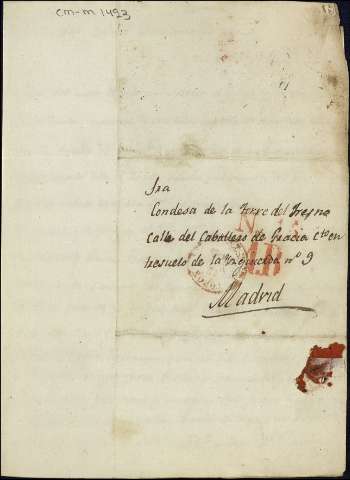 cm-m 1493
Sra
Condesa de la Torre del Fresno
Calle del Caballero de Gracia Cto en
tresuelo de la Izquierda nº 9
Madrid